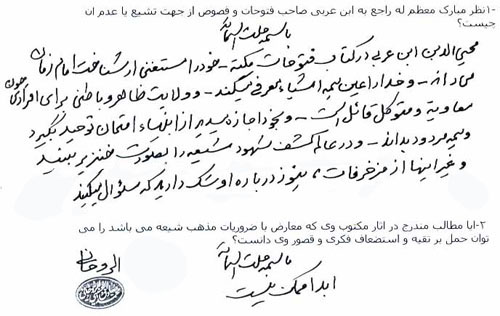 -۱نظر مبارک معظم له راجع به ابن عربی صاحب فتوحات و فصوص از جهت تشیع یا عدم ان
چیست؟
باسمه جلت اسمائه
محیی الدین ابن عربی در کتاب فتوحات مکیه - خود را مستغنی از شناخت امام زمان
میداند - و خدا را عین همه اشیاء معرفی میکند - و ولایت ظاهر و باطنی برای افرادی چون
معاویه و متوکل قائل است - و بخود اجازه میدهد از انبیاء امتحان توحید بگیرد
و همه مردود بداند - و در عالم کشف شهود شیعه را بصورت خنزیر ببیند
و غیر اینها از مزخرفات، هنوز درباره او شک دارید که سئوال میکنید
-۲ایا مطالب مندرج در اثار مکتوب وی که معارض با ضروریات مذهب شیعه می باشد را می
توان حمل بر تقیه و استضعاف فکری و قصور وی دانست؟
باسمه جلت اسمائه
ابدا ممکن نیست
الروحانی